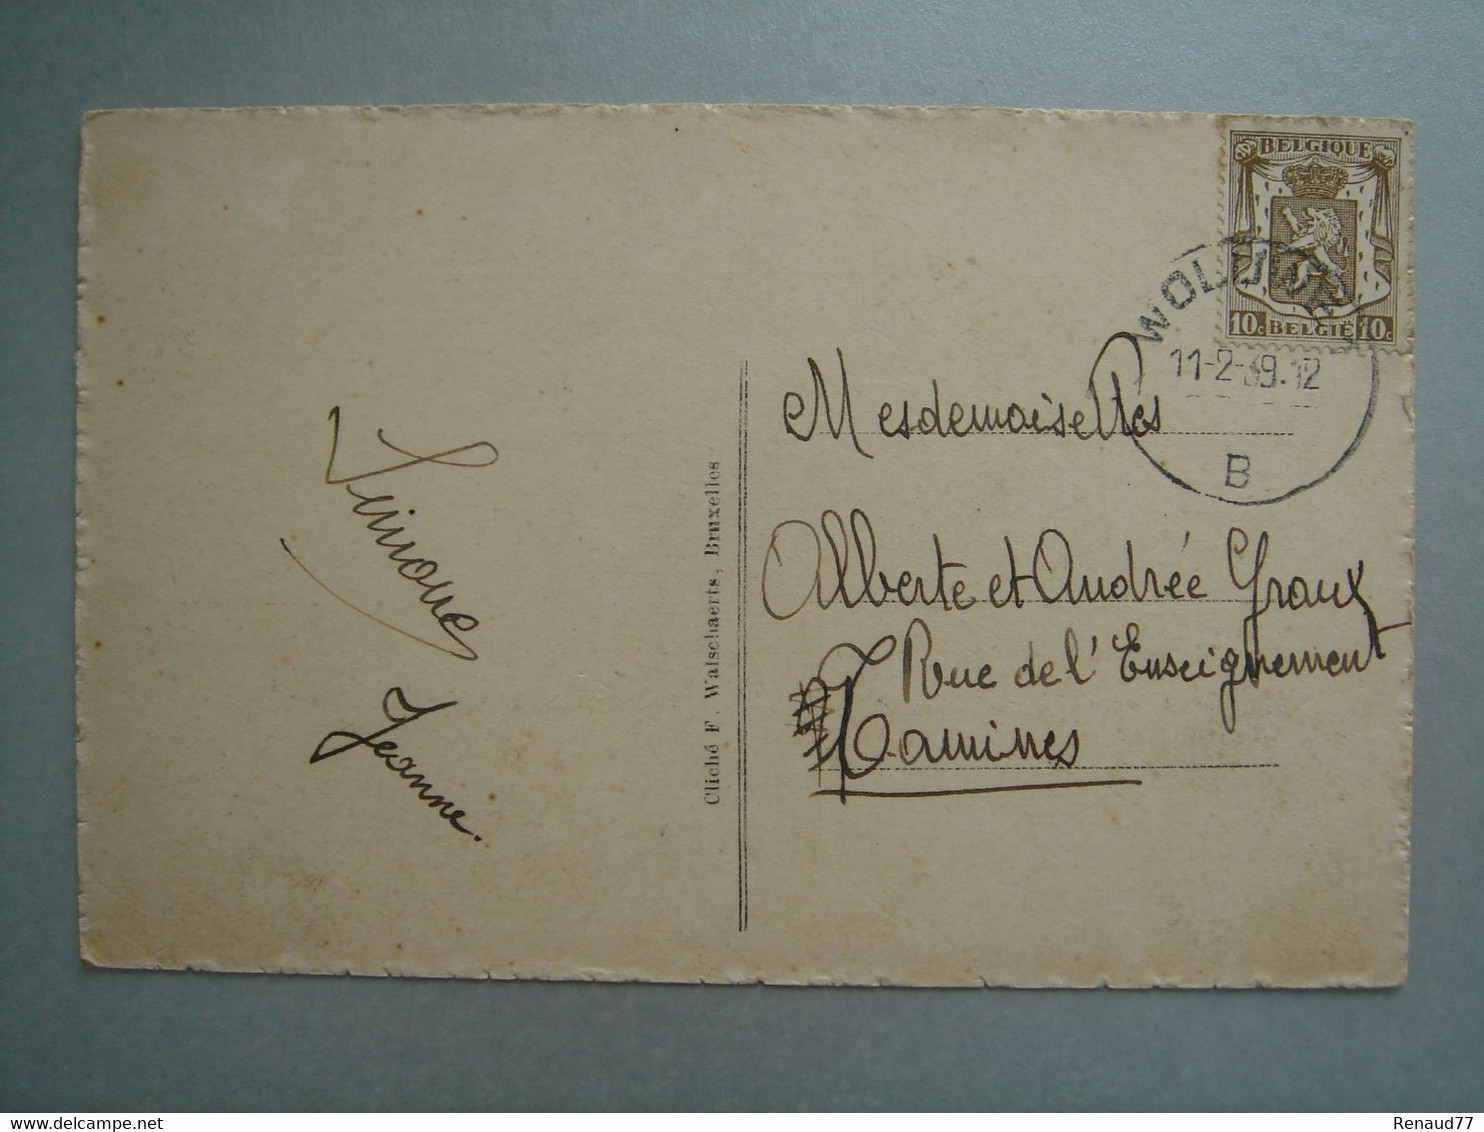 BELGIQUE
10c BELGIË 10c
WOLUWE
11-2-39.12
B
Mesdemoiselles
Alberte et Andrée Graux
7 Rue de l'Enseignement
Tamines
Cliché F. Walschaerts, Bruxelles
Simone
Jeanne.
Renaud77